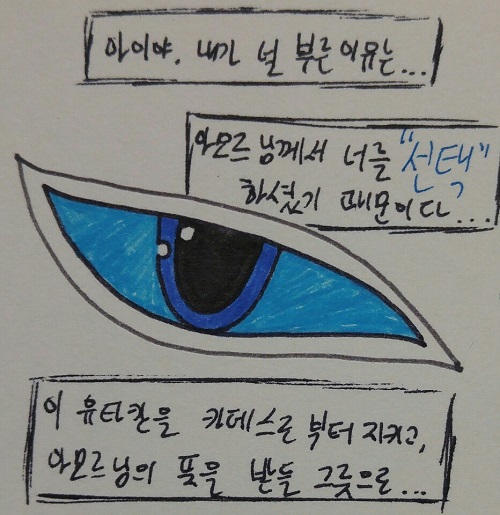 아이야. 내가 널 부른 이유는...
아모르 님께서 너를 "선택"
하셨기 때문이다...
이 유타칸을 카데스로 부터 지키고,
아모르님의 뜻을 받들 그릇으로...